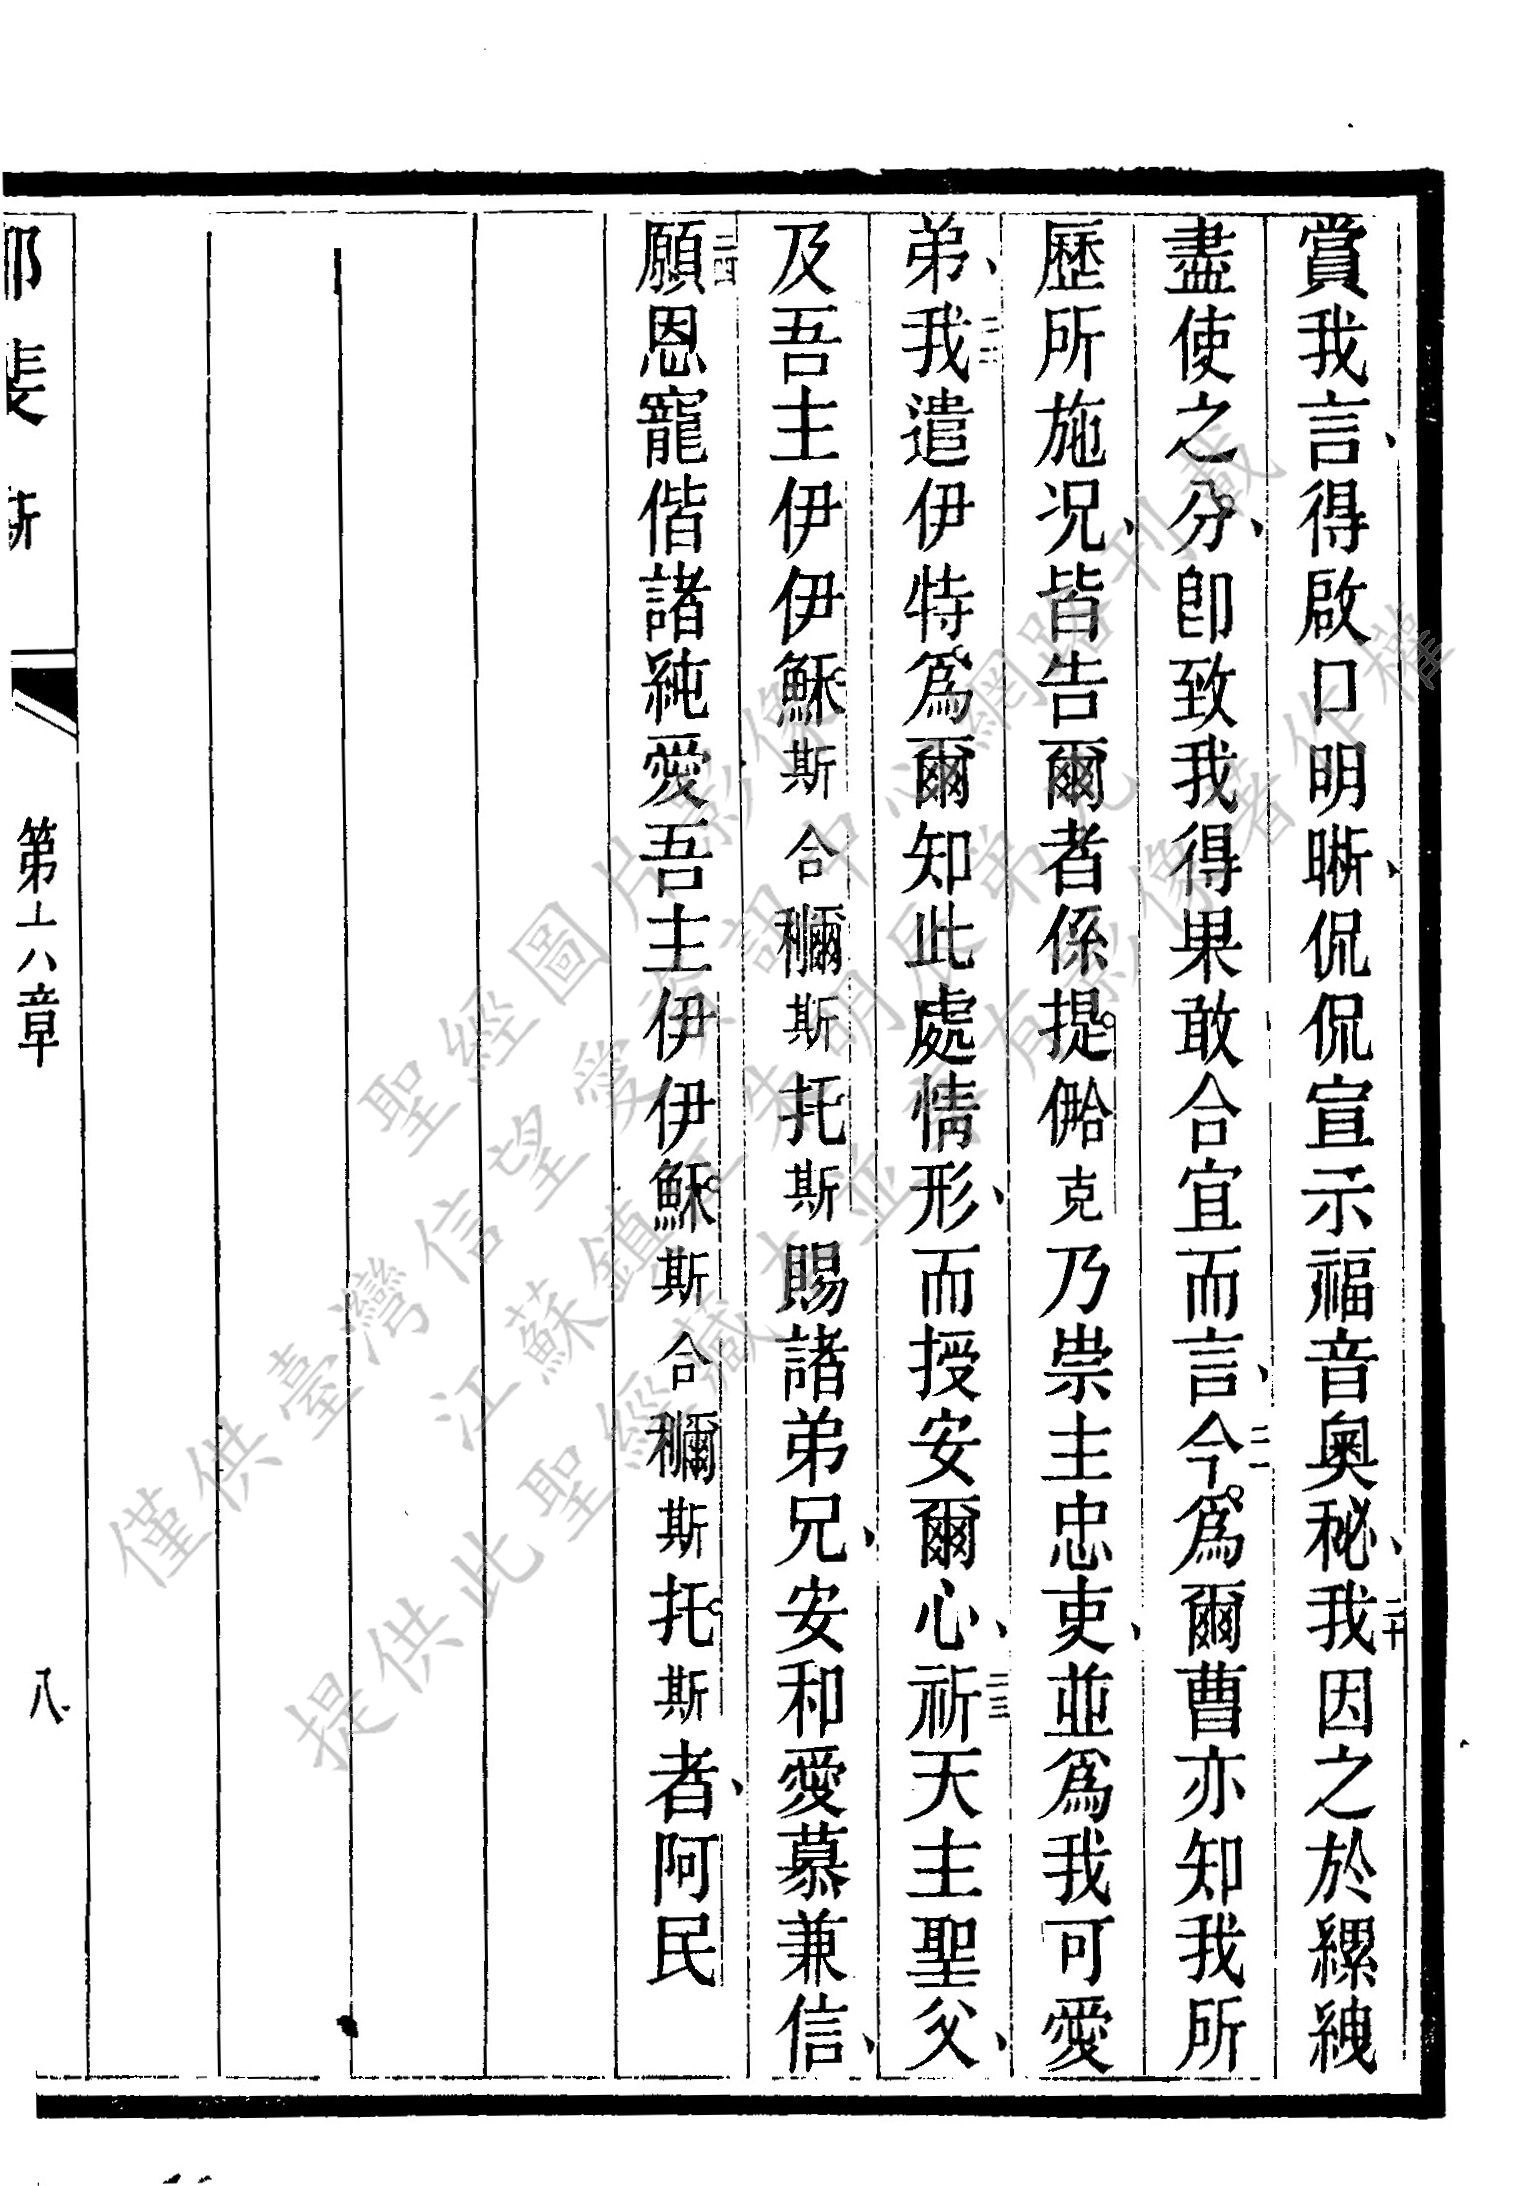 賞我言、得啟口明晰、侃侃宣示福音奧秘、二十我因之於縲絏
盡使之分、卽致我得果敢合宜而言、二一今爲爾曹亦知我所
歷所施况、皆告爾者係提僗克乃崇主忠吏、並爲我可愛
弟、二二我遣伊特爲爾知此處情形、而授安爾心、二三祈天主聖父、
及吾主伊伊穌斯合彌斯托斯賜諸弟兄、安和愛慕兼信、
二四願恩寵偕諸純愛吾主伊伊穌斯合彌斯托斯者、阿民
第六章
八
僅供臺灣信望愛資訊中心網路刊載
聖經圖片影像
江蘇鎮江朱明辰弟兄
提供此聖經藏本並享有影像著作權